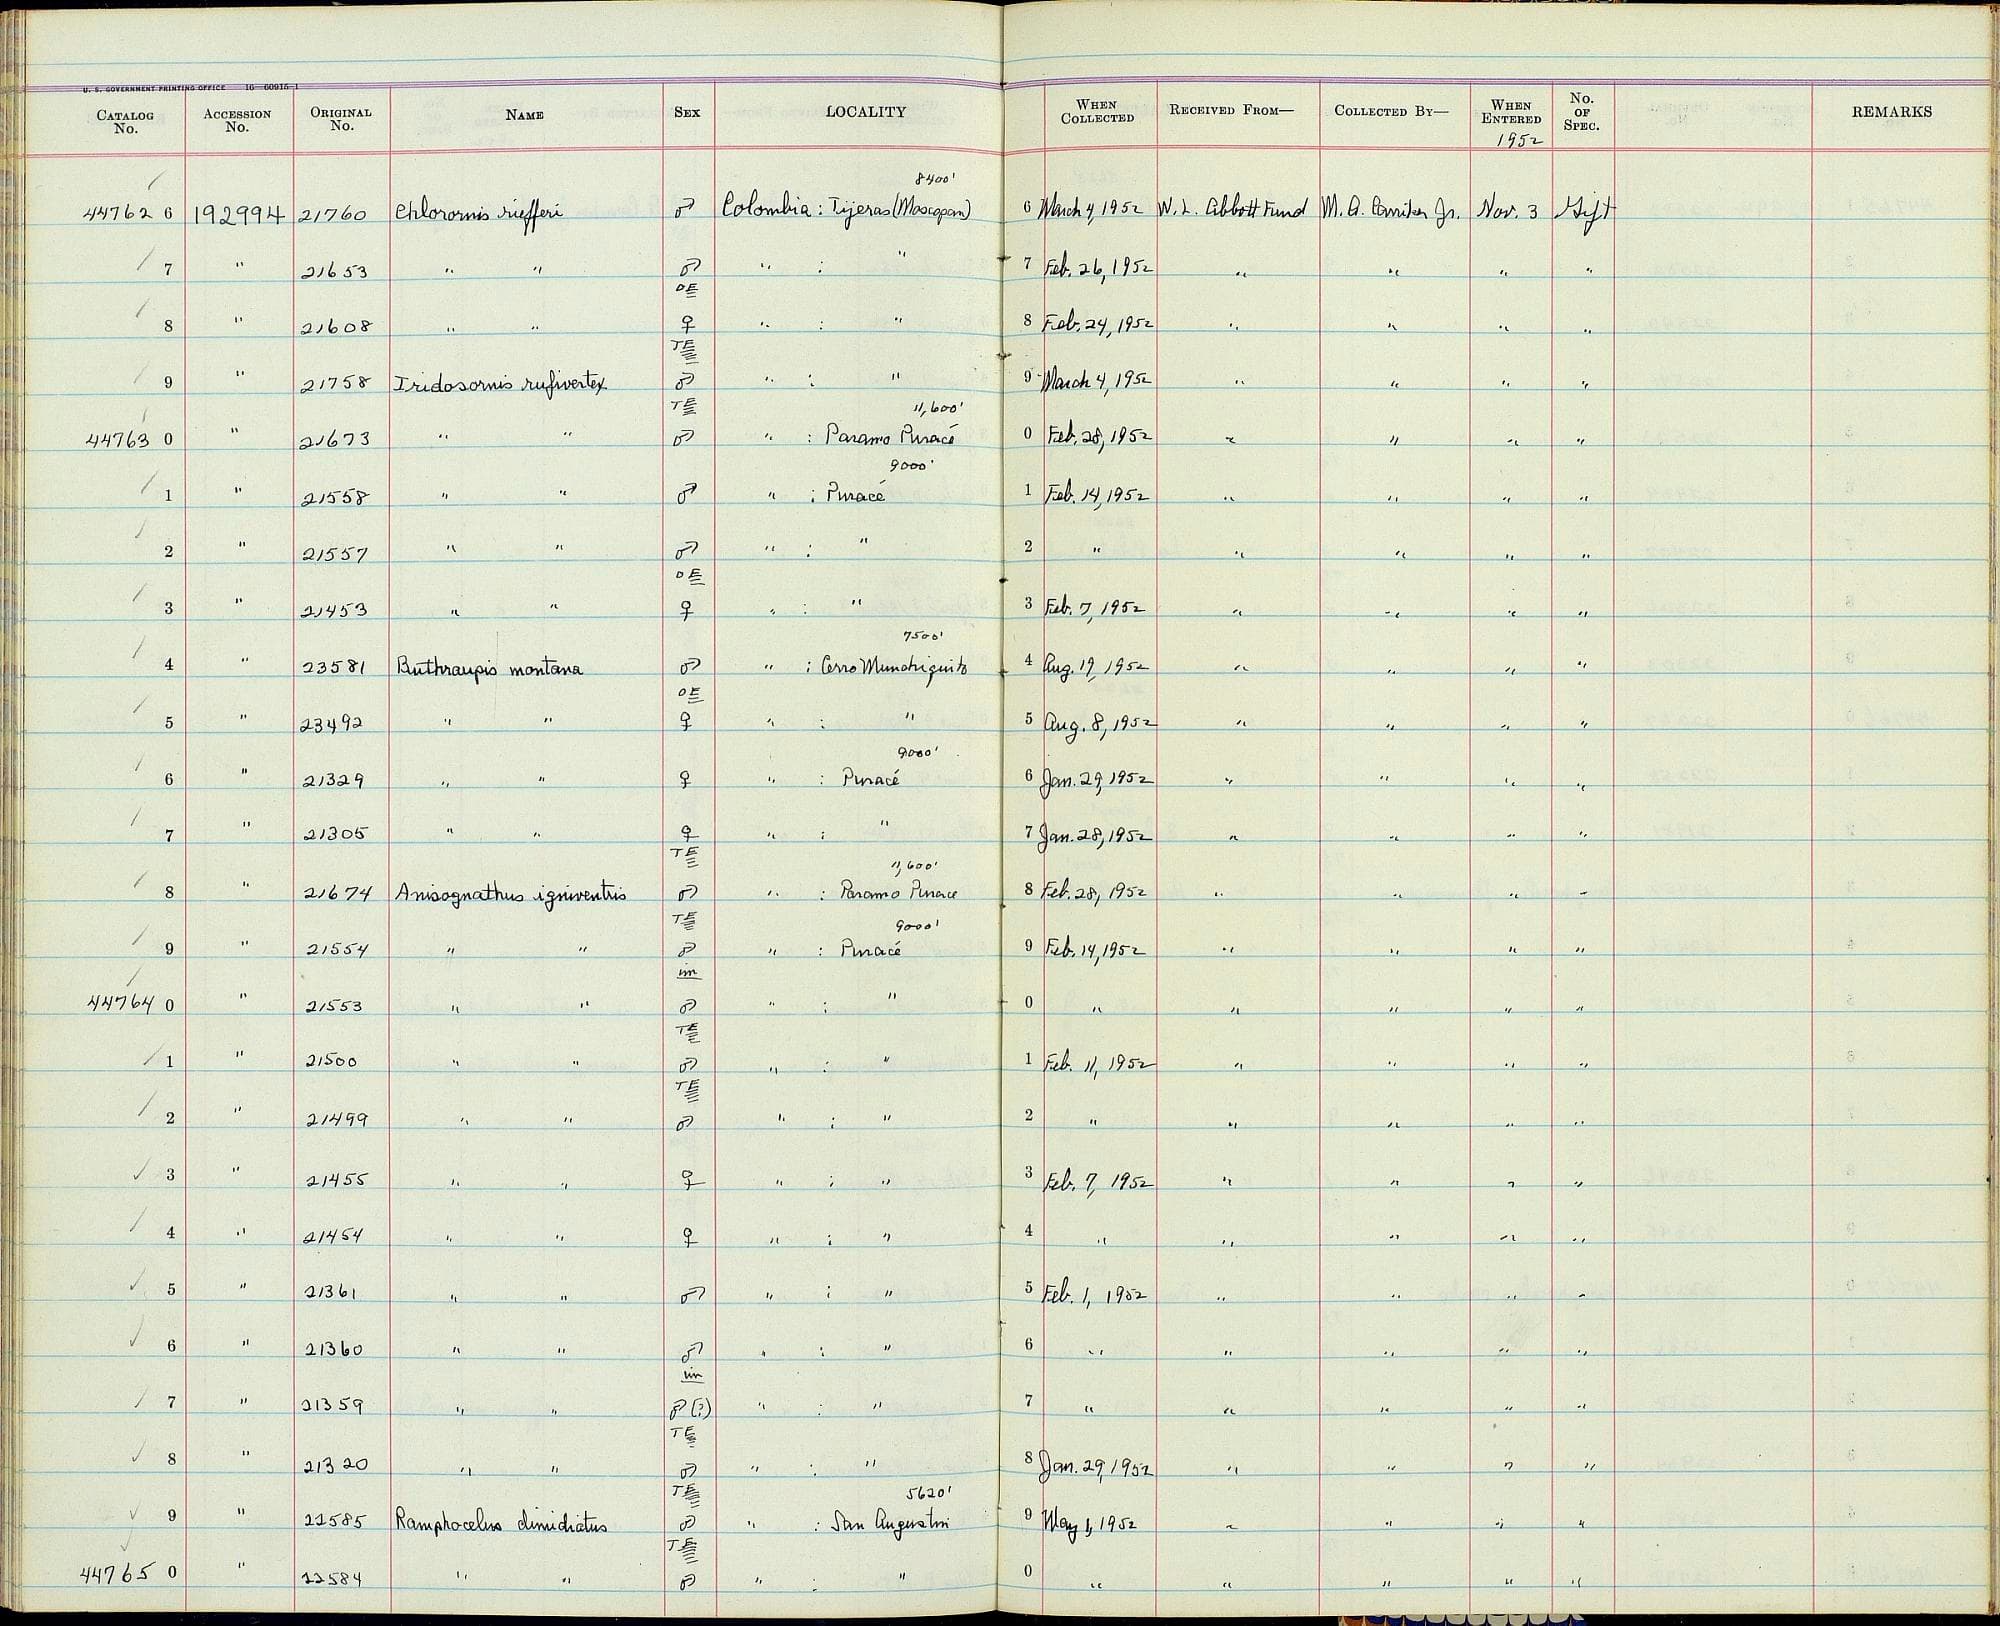 U. S. GOVERNMENT PRINTING OFFICE 16—60915-1
CATALOG No. ACCESSION No. ORIGINAL No. NAME SEX LOCALITY WHEN COLLECTED RECEIVED FROM— COLLECTED BY— WHEN ENTERED No. OF SPEC. REMARKS
1952
8400'
44762 6 192994 21760 Chlorornis riefferi ♂ Colombia : Tijeras (Moscopan) 6 March 4, 1952 W. L. Abbott Fund M. A. Carriker Jr. Nov. 3 Gift
7 " 21653 " " ♂ " : " 7 Feb. 26, 1952 " " " "
OE
8 " 21608 " " ♀ " : " 8 Feb. 24, 1952 " " " "
TE
9 " 21758 Iridosornis rufivertex ♂ " : " 9 March 4, 1952 " " " "
TE 11,600'
44763 0 " 21673 " " ♂ " : Paramo Puracé 0 Feb. 28, 1952 " " " "
9000'
1 " 21558 " " ♂ " : Puracé 1 Feb. 14, 1952 " " " "
2 " 21557 " " ♂ " : " 2 " " " " "
OE
3 " 21453 " " ♀ " : " 3 Feb. 7, 1952 " " " "
7500'
4 " 23581 Buthraupis montana ♂ " : Cerro Munchiquito 4 Aug. 19, 1952 " " " "
OE
5 " 23492 " " ♀ " : " 5 Aug. 8, 1952 " " " "
9000'
6 " 21329 " " ♀ " : Puracé 6 Jan. 29, 1952 " " " "
7 " 21305 " " ♀ " : " 7 Jan. 28, 1952 " " " "
TE 11,600'
8 " 21674 Anisognathus igniventris ♂ " : Paramo Purace 8 Feb. 28, 1952 " " " "
TE 9000'
9 " 21554 " " ♂ " : Puracé 9 Feb. 14, 1952 " " " "
im
44764 0 " 21553 " " ♂ " : " 0 " " " " "
TE
1 " 21500 " " ♂ " : " 1 Feb. 11, 1952 " " " "
TE
2 " 21499 " " ♂ " : " 2 " " " " "
3 " 21455 " " ♀ " : " 3 Feb. 7, 1952 " " " "
4 " 21454 " " ♀ " : " 4 " " " " "
5 " 21361 " " ♂ " : " 5 Feb. 1, 1952 " " " "
6 " 21360 " " ♂ " : " 6 " " " " "
im
7 " 21359 " " ♂ (?) " : " 7 " " " " "
TE
8 " 21320 " " ♂ " : " 8 Jan. 29, 1952 " " " "
TE 5620'
9 " 22585 Ramphocelus dimidiatus ♂ " : San Augustin 9 May 1, 1952 " " " "
TE
44765 0 " 22584 " " ♂ " : " 0 " " " " "